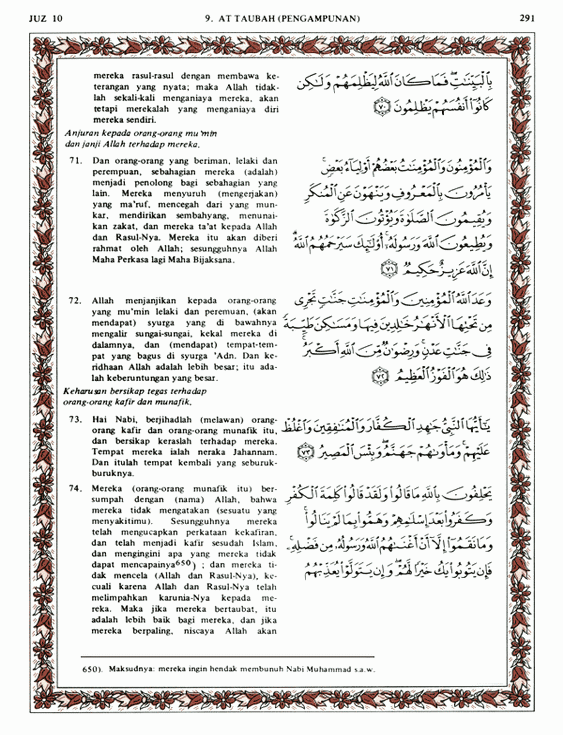 JUZ 10
9. AT TAUBAH (PENGAMPUNAN)
291
mereka rasul-rasul dengan membawa ke-
terangan yang nyata; maka Allah tidak-
lah sekali-kali menganiaya mereka, akan
tetapi merekalah yang menganiaya diri
mereka sendiri.
Anjuran kepada orang-orang mu'min
dan janji Allah terhadap mereka.
71. Dan orang-orang yang beriman, lelaki dan
perempuan, sebahagian mereka (adalah)
menjadi penolong bagi sebahagian yang
lain. Mereka menyuruh (mengerjakan)
yang ma'ruf, mencegah dari yang mun-
kar, mendirikan sembahyang, menunai-
kan zakat, dan mereka ta'at kepada Allah
dan Rasul-Nya. Mereka itu akan diberi
rahmat oleh Allah; sesungguhnya Allah
Maha Perkasa lagi Maha Bijaksana.
72. Allah menjanjikan kepada orang-orang
yang mu'min lelaki dan peremuan, (akan
mendapat) syurga yang di bawahnya
mengalir sungai-sungai, kekal mereka di
dalamnya, dan (mendapat) tempat-tem-
pat yang bagus di syurga 'Adn. Dan ke-
ridhaan Allah adalah lebih besar; itu ada-
lah keberuntungan yang besar.
Keharusan bersikap tegas terhadap
orang-orang kafir dan munafik.
73. Hai Nabi, berjihadlah (melawan) orang-
orang kafir dan orang-orang munafik itu,
dan bersikap keraslah terhadap mereka.
Tempat mereka ialah neraka Jahannam.
Dan itulah tempat kembali yang seburuk-
buruknya.
74. Mereka (orang-orang munafik itu) ber-
sumpah dengan (nama) Allah, bahwa
mereka tidak mengatakan (sesuatu yang
menyakitimu). Sesungguhnya mereka
telah mengucapkan perkataan kekafiran,
dan telah menjadi kafir sesudah Islam,
dan mengingini apa yang mereka tidak
dapat mencapainya650) ; dan mereka ti-
dak mencela (Allah dan Rasul-Nya), ke-
cuali karena Allah dan Rasul-Nya telah
melimpahkan karunia-Nya kepada me-
reka. Maka jika mereka bertaubat, itu
adalah lebih baik bagi mereka, dan jika
mereka berpaling, niscaya Allah akan
بِالْبَيِّنَٰتِ فَمَا كَانَ اللَّهُ لِيَظْلِمَهُمْ وَلَٰكِن
كَانُوٓا۟ أَنفُسَهُمْ يَظْلِمُونَ ﴿٧٠﴾
وَالْمُؤْمِنُونَ وَالْمُؤْمِنَٰتُ بَعْضُهُمْ أَوْلِيَآءُ بَعْضٍ
يَأْمُرُونَ بِالْمَعْرُوفِ وَيَنْهَوْنَ عَنِ الْمُنكَرِ
وَيُقِيمُونَ الصَّلَوٰةَ وَيُؤْتُونَ الزَّكَوٰةَ
وَيُطِيعُونَ اللَّهَ وَرَسُولَهُۥٓ أُو۟لَٰٓئِكَ سَيَرْحَمُهُمُ اللَّهُ
إِنَّ اللَّهَ عَزِيزٌ حَكِيمٌ ﴿٧١﴾
وَعَدَ اللَّهُ الْمُؤْمِنِينَ وَالْمُؤْمِنَٰتِ جَنَّٰتٍ تَجْرِى
مِن تَحْتِهَا الْأَنْهَٰرُ خَٰلِدِينَ فِيهَا وَمَسَٰكِنَ طَيِّبَةً
فِى جَنَّٰتِ عَدْنٍ وَرِضْوَٰنٌ مِّنَ اللَّهِ أَكْبَرُ
ذَٰلِكَ هُوَ الْفَوْزُ الْعَظِيمُ ﴿٧٢﴾
يَٰٓأَيُّهَا النَّبِىُّ جَٰهِدِ الْكُفَّارَ وَالْمُنَٰفِقِينَ وَاغْلُظْ
عَلَيْهِمْ وَمَأْوَىٰهُمْ جَهَنَّمُ وَبِئْسَ الْمَصِيرُ ﴿٧٣﴾
يَحْلِفُونَ بِاللَّهِ مَا قَالُوا۟ وَلَقَدْ قَالُوا۟ كَلِمَةَ الْكُفْرِ
وَكَفَرُوا۟ بَعْدَ إِسْلَٰمِهِمْ وَهَمُّوا۟ بِمَا لَمْ يَنَالُوا۟
وَمَا نَقَمُوٓا۟ إِلَّآ أَنْ أَغْنَىٰهُمُ اللَّهُ وَرَسُولُهُۥ مِن فَضْلِهِۦ
فَإِن يَتُوبُوا۟ يَكُ خَيْرًا لَّهُمْ وَإِن يَتَوَلَّوْا۟ يُعَذِّبْهُمُ
650). Maksudnya: mereka ingin hendak membunuh Nabi Muhammad s.a.w.